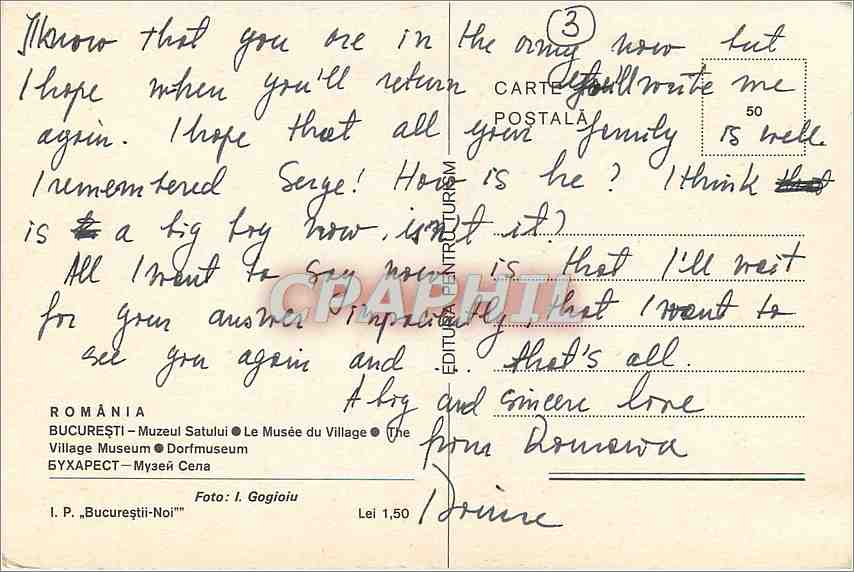 3
I know that you are in the army now but
I hope when you'll return you'll write me
again. I hope that all your family is well.
I remembered Serge! How is he? I think that
is a big boy now, isn't it?
All I want to say now is that I'll wait
for your answer impaciently, that I want to
see you again and ... that's all.
A big and sincere love
from Romania
CARTE
POȘTALĂ
50
EDITURA PENTRU TURISM
CPAPHIL
ROMÂNIA
BUCUREȘTI – Muzeul Satului ● Le Musée du Village ● The
Village Museum ● Dorfmuseum
БУХАРЕСТ — Музей Села
Foto: I. Gogioiu
I. P. „Bucureștii-Noi"" Lei 1,50